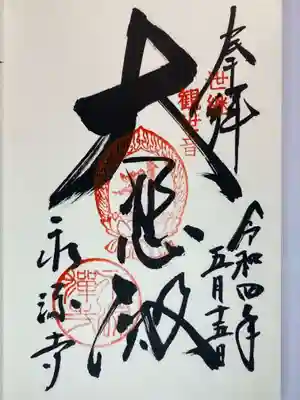 奉拝
令和四年
五月十五日
世継
観世音
大悲殿
永源寺